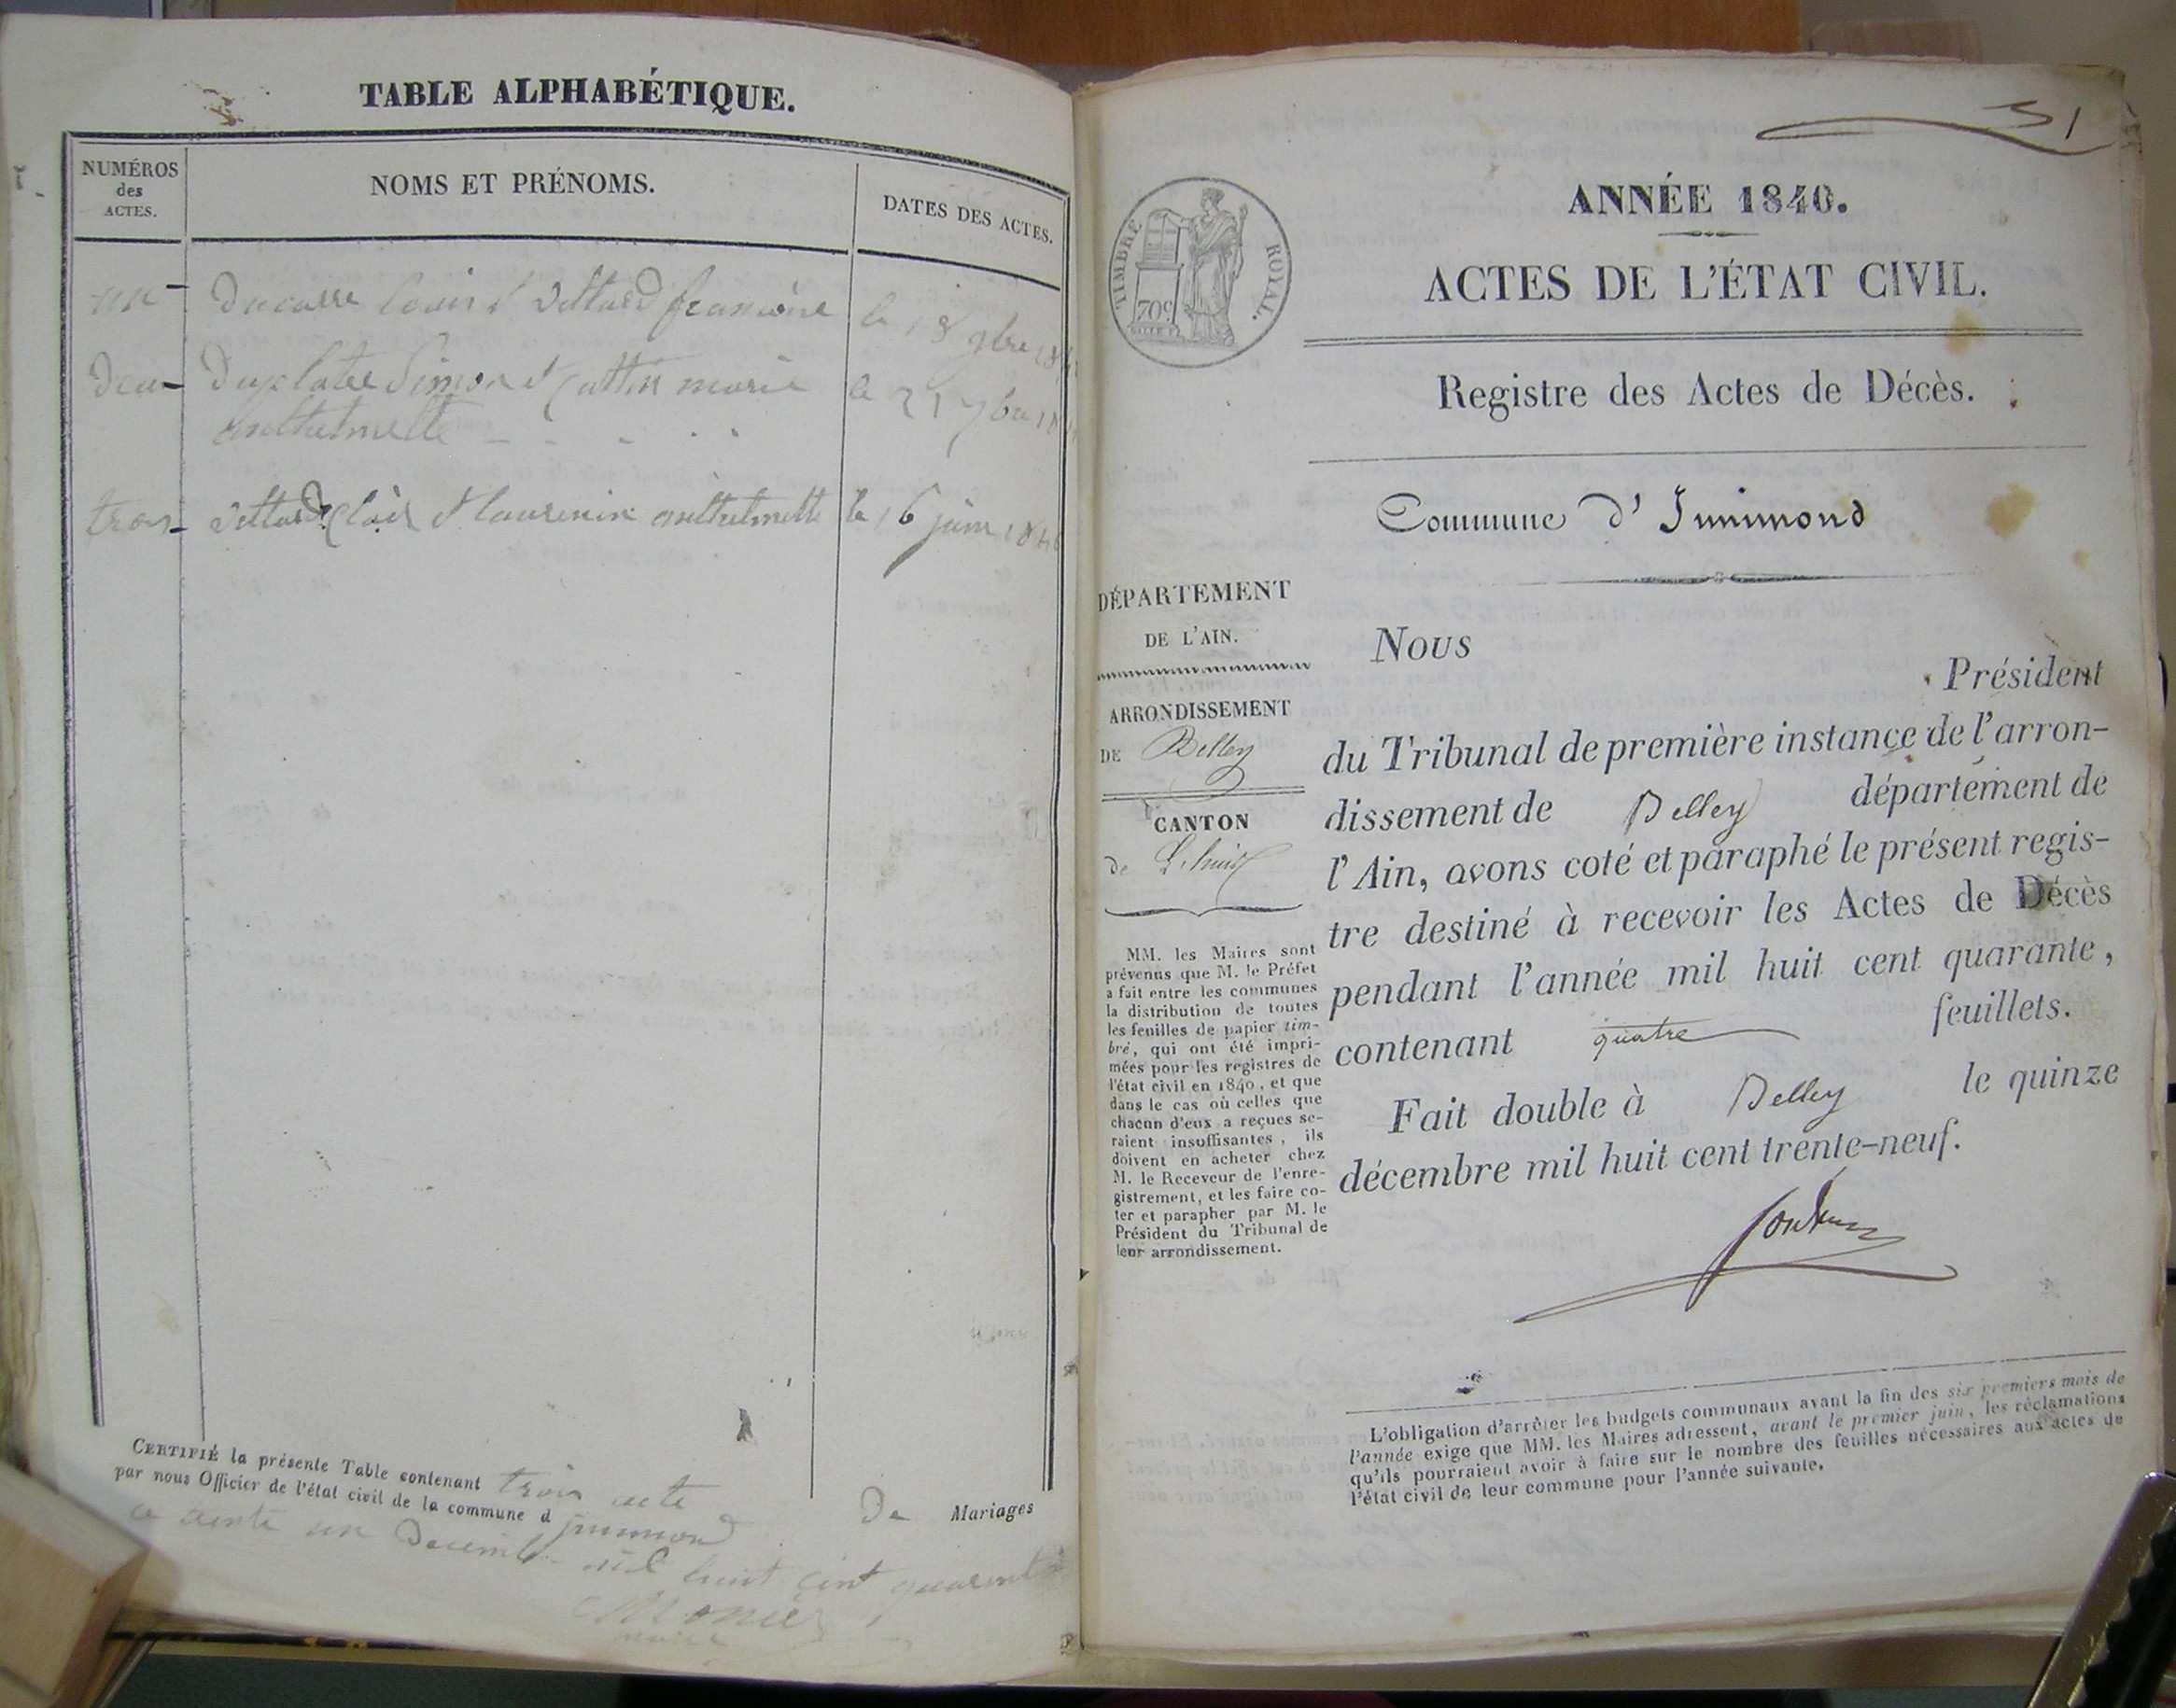 TABLE ALPHABÉTIQUE.
NUMÉROS
des
ACTES.
NOMS ET PRÉNOMS.
DATES DES ACTES.
un
Ducarre Louis et Vettard françoise
le 18 9bre 18
deu
Duplatre Simon et Cottin marie
le 21 7bre 18
anthelmette
trois
Vettard Clair et Laurencin anthelmette
le 16 juin 1840
CERTIFIÉ la présente Table contenant trois acte De Mariages
par nous Officier de l'état civil de la commune d jnnimond
ce trente un Decembre mil huit cent quarante
Monier
maire
51
ANNÉE 1840.
TIMBRE ROYAL.
70c
ACTES DE L'ÉTAT CIVIL.
Registre des Actes de Décès.
Commune d'Innimond
DÉPARTEMENT
DE L'AIN.
ARRONDISSEMENT
DE Belley
CANTON
de Lhuis
MM. les Maires sont
prévenus que M. le Préfet
a fait entre les communes
la distribution de toutes
les feuilles de papier tim-
bré, qui ont été impri-
mées pour les registres de
l'état civil en 1840, et que
dans le cas où celles que
chacun d'eux a reçues se-
raient insuffisantes, ils
doivent en acheter chez
M. le Receveur de l'enre-
gistrement, et les faire co-
ter et parapher par M. le
Président du Tribunal de
leur arrondissement.
Nous
Président
du Tribunal de première instance de l'arron-
dissement de Belley département de
l'Ain, avons coté et paraphé le présent regis-
tre destiné à recevoir les Actes de Décès
pendant l'année mil huit cent quarante,
contenant quatre feuillets.
Fait double à Belley le quinze
décembre mil huit cent trente-neuf.
L'obligation d'arrêter les budgets communaux avant la fin des six premiers mois de
l'année exige que MM. les Maires adressent, avant le premier juin, les réclamations
qu'ils pourraient avoir à faire sur le nombre des feuilles nécessaires aux actes de
l'état civil de leur commune pour l'année suivante.